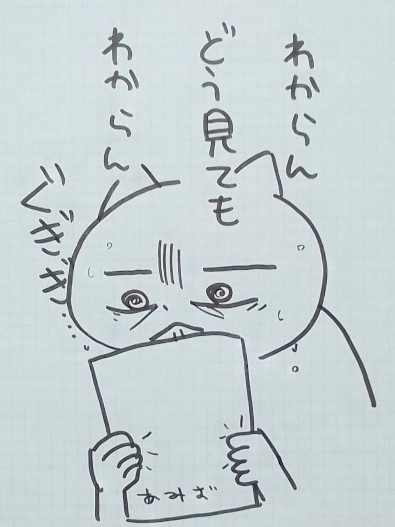 わからん
どう見ても
わからん
ぐぎぎ……
あみお